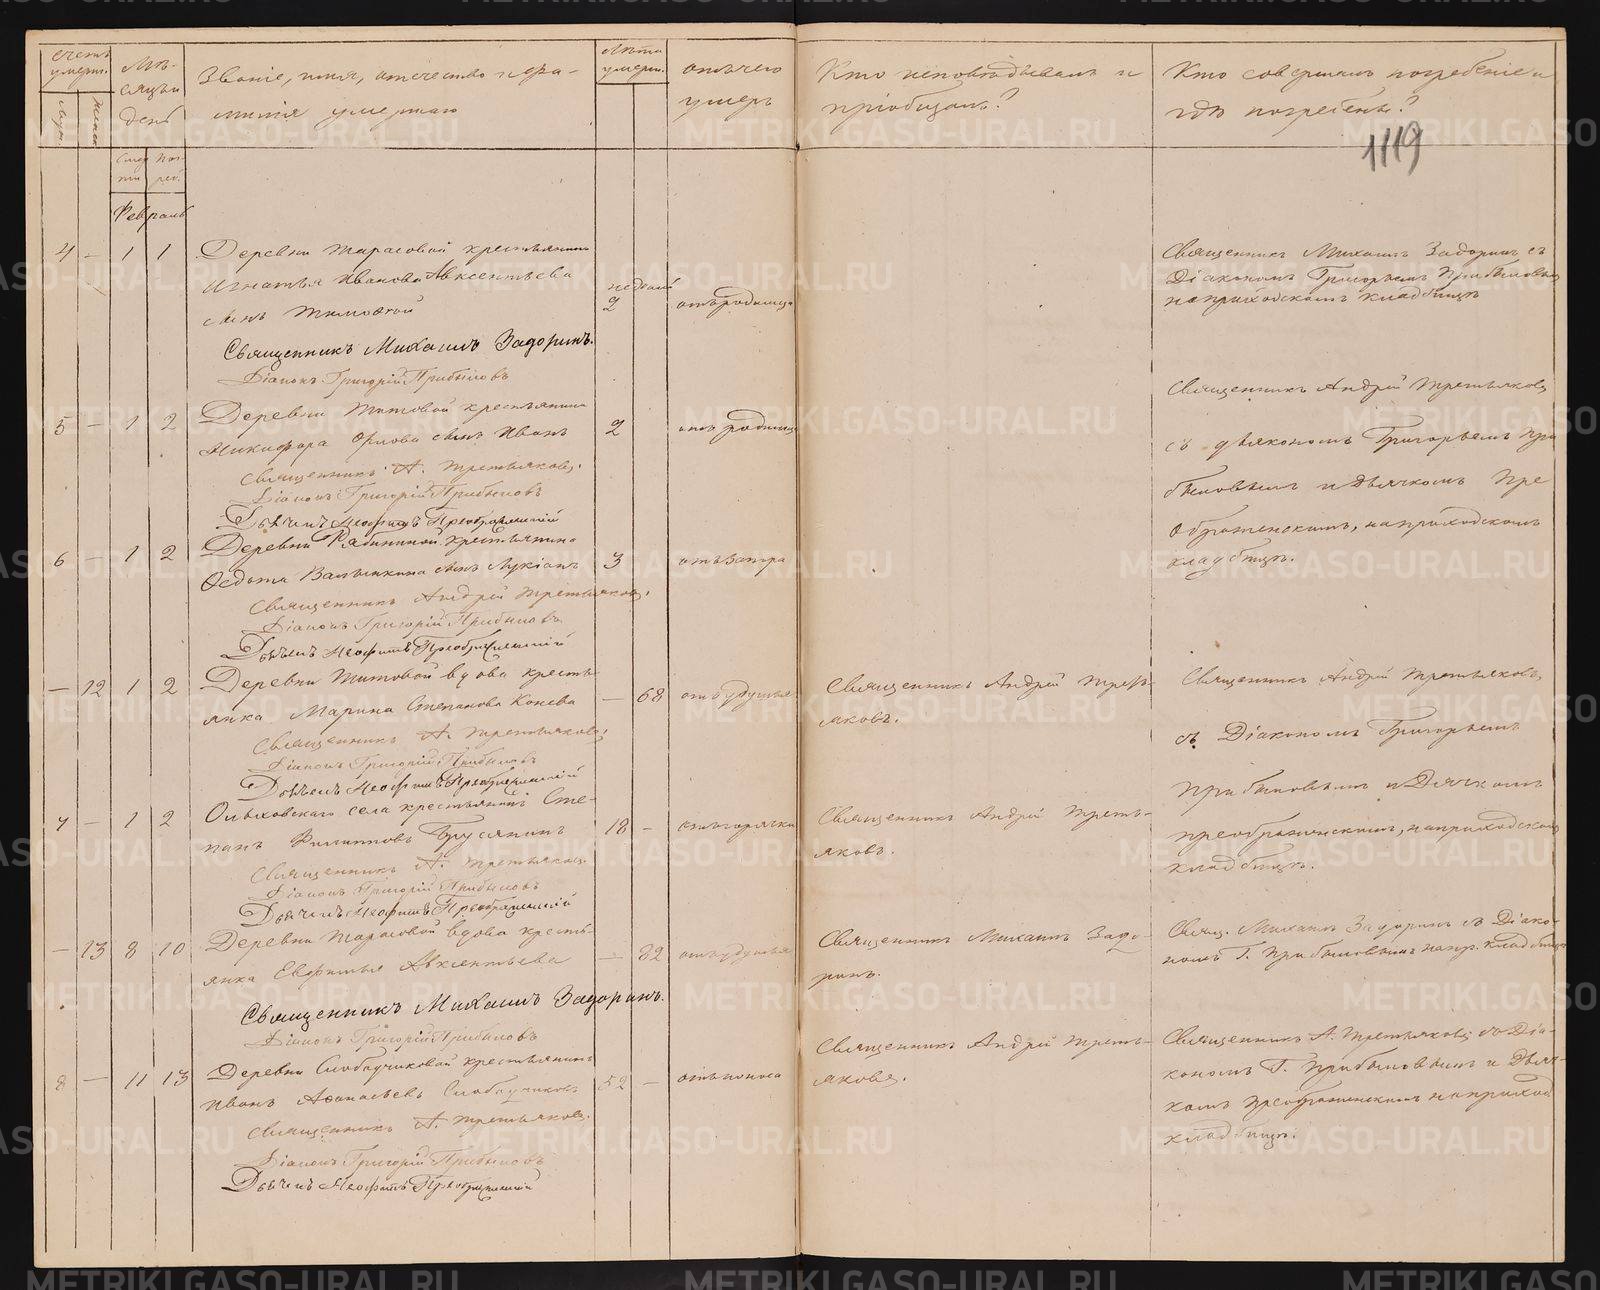 Счетъ умерш.
Муж.
Женс.
Мѣсяцъ и день
Смерти
Погреб.
Званіе, имя, отчество и фамилія умершаго
Лѣта умерш.
Отъ чего умеръ
Кто исповѣдывалъ и пріобщалъ?
Кто совершалъ погребеніе и гдѣ погребены?
1119
Февраль
4 — 1 1
Деревни Тарасовой крестьянина
Игнатья Иванова Авксентьева
сынъ Тимофей
недѣль
2
отъ родимца
Священникъ Михаилъ Задоринъ съ
Діакономъ Григорьемъ Прибыловымъ
на приходскомъ кладбищѣ
Священникъ Михаилъ Задоринъ.
Діаконъ Григорій Прибыловъ
5 — 1 2
Деревни Титовой крестьянина
Никифора Орлова сынъ Иванъ
2
отъ родимца
Священникъ Андрей Третьяковъ
съ дьякономъ Григорьемъ При
быловымъ и дьячкомъ Пре
ображенскимъ, на приходскомъ
кладбищѣ.
Священникъ А. Третьяковъ.
Діаконъ Григорій Прибыловъ
Дьячекъ Неофитъ Преображенскій
6 — 1 2
Деревни Рябининой крестьянина
Федота сынъ Лукіанъ
3
Священникъ Андрей Третьяковъ.
Діаконъ Григорій Прибыловъ
Дьячекъ Неофитъ Преображенскій
— 12 1 2
Деревни Титовой вдова кресть
янка Марина Степанова Конева
— 68
отъ удушья
Священникъ Андрей Треть
яковъ.
Священникъ Андрей Третьяковъ,
съ Діакономъ Григорьемъ
Прибыловымъ и Дьячкомъ
преображенскимъ, на приходском
кладбищѣ.
Священникъ А. Третьяковъ.
Діаконъ Григорій Прибыловъ
Дьячекъ Неофитъ Преображенскій
7 — 1 2
села крестьянинъ Сте-
панъ Филипповъ Брусянинъ
18 —
отъ горячки
Священникъ Андрей Треть-
яковъ.
Священникъ А. Третьяковъ.
Діаконъ Григорій Прибыловъ
Дьячекъ Неофитъ Преображенскій
— 13 8 10
Деревни Тарасовой вдова кресть-
янка Евфимья Авксентьева
— 82
отъ удушья
Священникъ Михаилъ Задо-
ринъ.
Свящ. Михаилъ Задоринъ съ Діако-
номъ Г. Прибыловымъ на пр. кладбищѣ
Священникъ Михаилъ Задоринъ.
Діаконъ Григорій Прибыловъ
8 — 11 13
Деревни Слободчиковой крестьянинъ
Иванъ Афанасьевъ Слободчиковъ
52 —
отъ поноса
Священникъ Андрей Треть-
яковъ.
Священникъ А. Третьяковъ съ Діа-
кономъ Г. Прибыловымъ и Дьяч-
комъ Преображенскимъ на приход.
кладбищѣ.
Священникъ А. Третьяковъ.
Діаконъ Григорій Прибыловъ
Дьячекъ Неофитъ Преображенскій
METRIKI.GASO-URAL.RU